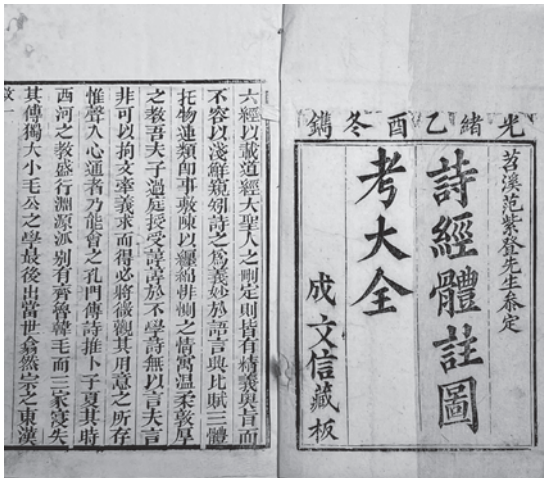 光緒乙酉冬鐫
苕溪范紫登先生叅定
詩經體註圖
考大全
成文信藏板
六經以載道經大聖人之刪定則皆有精義奧旨而
不容以淺鮮窺矧詩之爲義妙於語言興比賦三體
托物連類即事敷陳以纏綿悱惻之情寓温柔敦厚
之教吾夫子過庭授受諄諄於不學詩無以言夫言
非可以拘文牽義求而得必將微觀其用意之所存
惟聲入心通者乃能會之孔門傳詩推卜子夏其時
西河之教盛行淵源派别有齊魯韓毛而三家寖失
其傳獨大小毛公之學最後出當世翕然宗之東漢
一